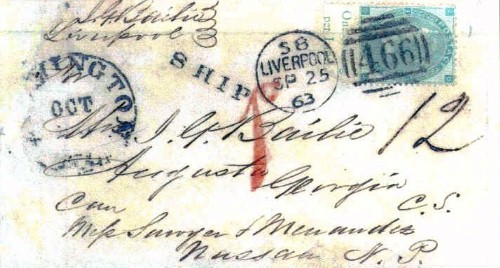 J. G. Bailie
Liverpool
SHIP
S8
LIVERPOOL
SP 25
63
466
MINGTON
OCT
12
Mrs. J. G. Bailie
Augusta Georgia
C.S.
Care
Messrs Sawyer & Menendez
Nassau N. P.